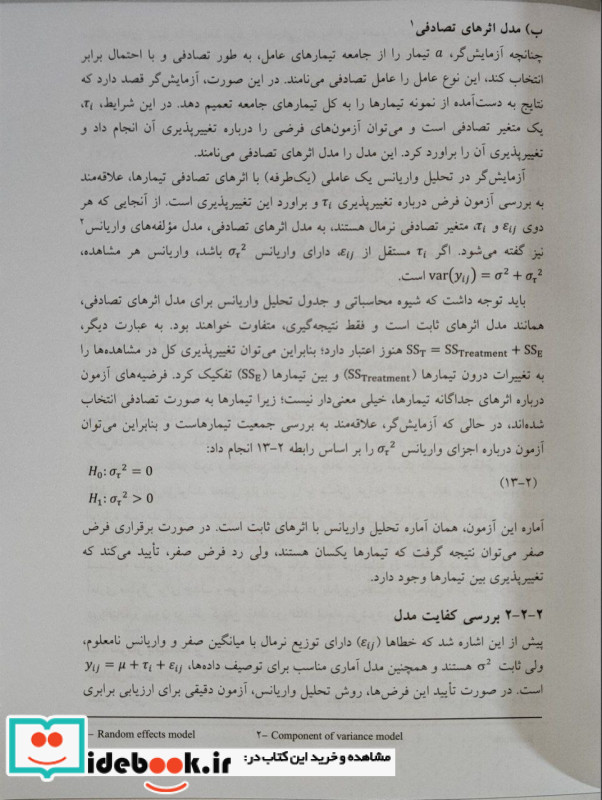 ب) مدل اثرهای تصادفی۱
چنانچه آزمایش‌گر، a تیمار را از جامعه تیمارهای عامل، به طور تصادفی و با احتمال برابر
انتخاب کند، این نوع عامل را عامل تصادفی می‌نامند. در این صورت، آزمایش‌گر قصد دارد که
نتایج به دست‌آمده از نمونه تیمارها را به کل تیمارهای جامعه تعمیم دهد. در این شرایط، τᵢ،
یک متغیر تصادفی است و می‌توان آزمون‌های فرضی را درباره تغییرپذیری آن انجام داد و
تغییرپذیری آن را براورد کرد. این مدل را مدل اثرهای تصادفی می‌نامند.
آزمایش‌گر در تحلیل واریانس یک عاملی (یک‌طرفه) با اثرهای تصادفی تیمارها، علاقه‌مند
به بررسی آزمون فرض درباره تغییرپذیری τᵢ و براورد این تغییرپذیری است. از آنجایی که هر
دوی εᵢⱼ و τᵢ، متغیر تصادفی نرمال هستند، به مدل اثرهای تصادفی، مدل مؤلفه‌های واریانس۲
نیز گفته می‌شود. اگر τᵢ مستقل از εᵢⱼ، دارای واریانس στ² باشد، واریانس هر مشاهده،
var(yᵢⱼ) = σ² + στ² است.
باید توجه داشت که شیوه محاسباتی و جدول تحلیل واریانس برای مدل اثرهای تصادفی،
همانند مدل اثرهای ثابت است و فقط نتیجه‌گیری، متفاوت خواهند بود. به عبارت دیگر،
SS_T = SS_Treatment + SS_E هنوز اعتبار دارد؛ بنابراین می‌توان تغییرپذیری کل در مشاهده‌ها را
به تغییرات درون تیمارها (SS_Treatment) و بین تیمارها (SS_E) تفکیک کرد. فرضیه‌های آزمون
درباره اثرهای جداگانه تیمارها، خیلی معنی‌دار نیست؛ زیرا تیمارها به صورت تصادفی انتخاب
شده‌اند، در حالی که آزمایش‌گر، علاقه‌مند به بررسی جمعیت تیمارهاست و بنابراین می‌توان
آزمون درباره اجزای واریانس στ² را بر اساس رابطه ۲-۱۳ انجام داد:
H₀: στ² = 0
(۲-۱۳)
H₁: στ² > 0
آماره این آزمون، همان آماره تحلیل واریانس با اثرهای ثابت است. در صورت برقراری فرض
صفر می‌توان نتیجه گرفت که تیمارها یکسان هستند، ولی رد فرض صفر، تأیید می‌کند که
تغییرپذیری بین تیمارها وجود دارد.
۲-۲-۲ بررسی کفایت مدل
پیش از این اشاره شد که خطاها (εᵢⱼ) دارای توزیع نرمال با میانگین صفر و واریانس نامعلوم،
ولی ثابت σ² هستند و همچنین مدل آماری مناسب برای توصیف داده‌ها، yᵢⱼ = μ + τᵢ + εᵢⱼ
است. در صورت تأیید این فرض‌ها، روش تحلیل واریانس، آزمون دقیقی برای ارزیابی برابری
– Random effects model ۲– Component of variance model
مشاهده و خرید این کتاب در:
idebook.ir